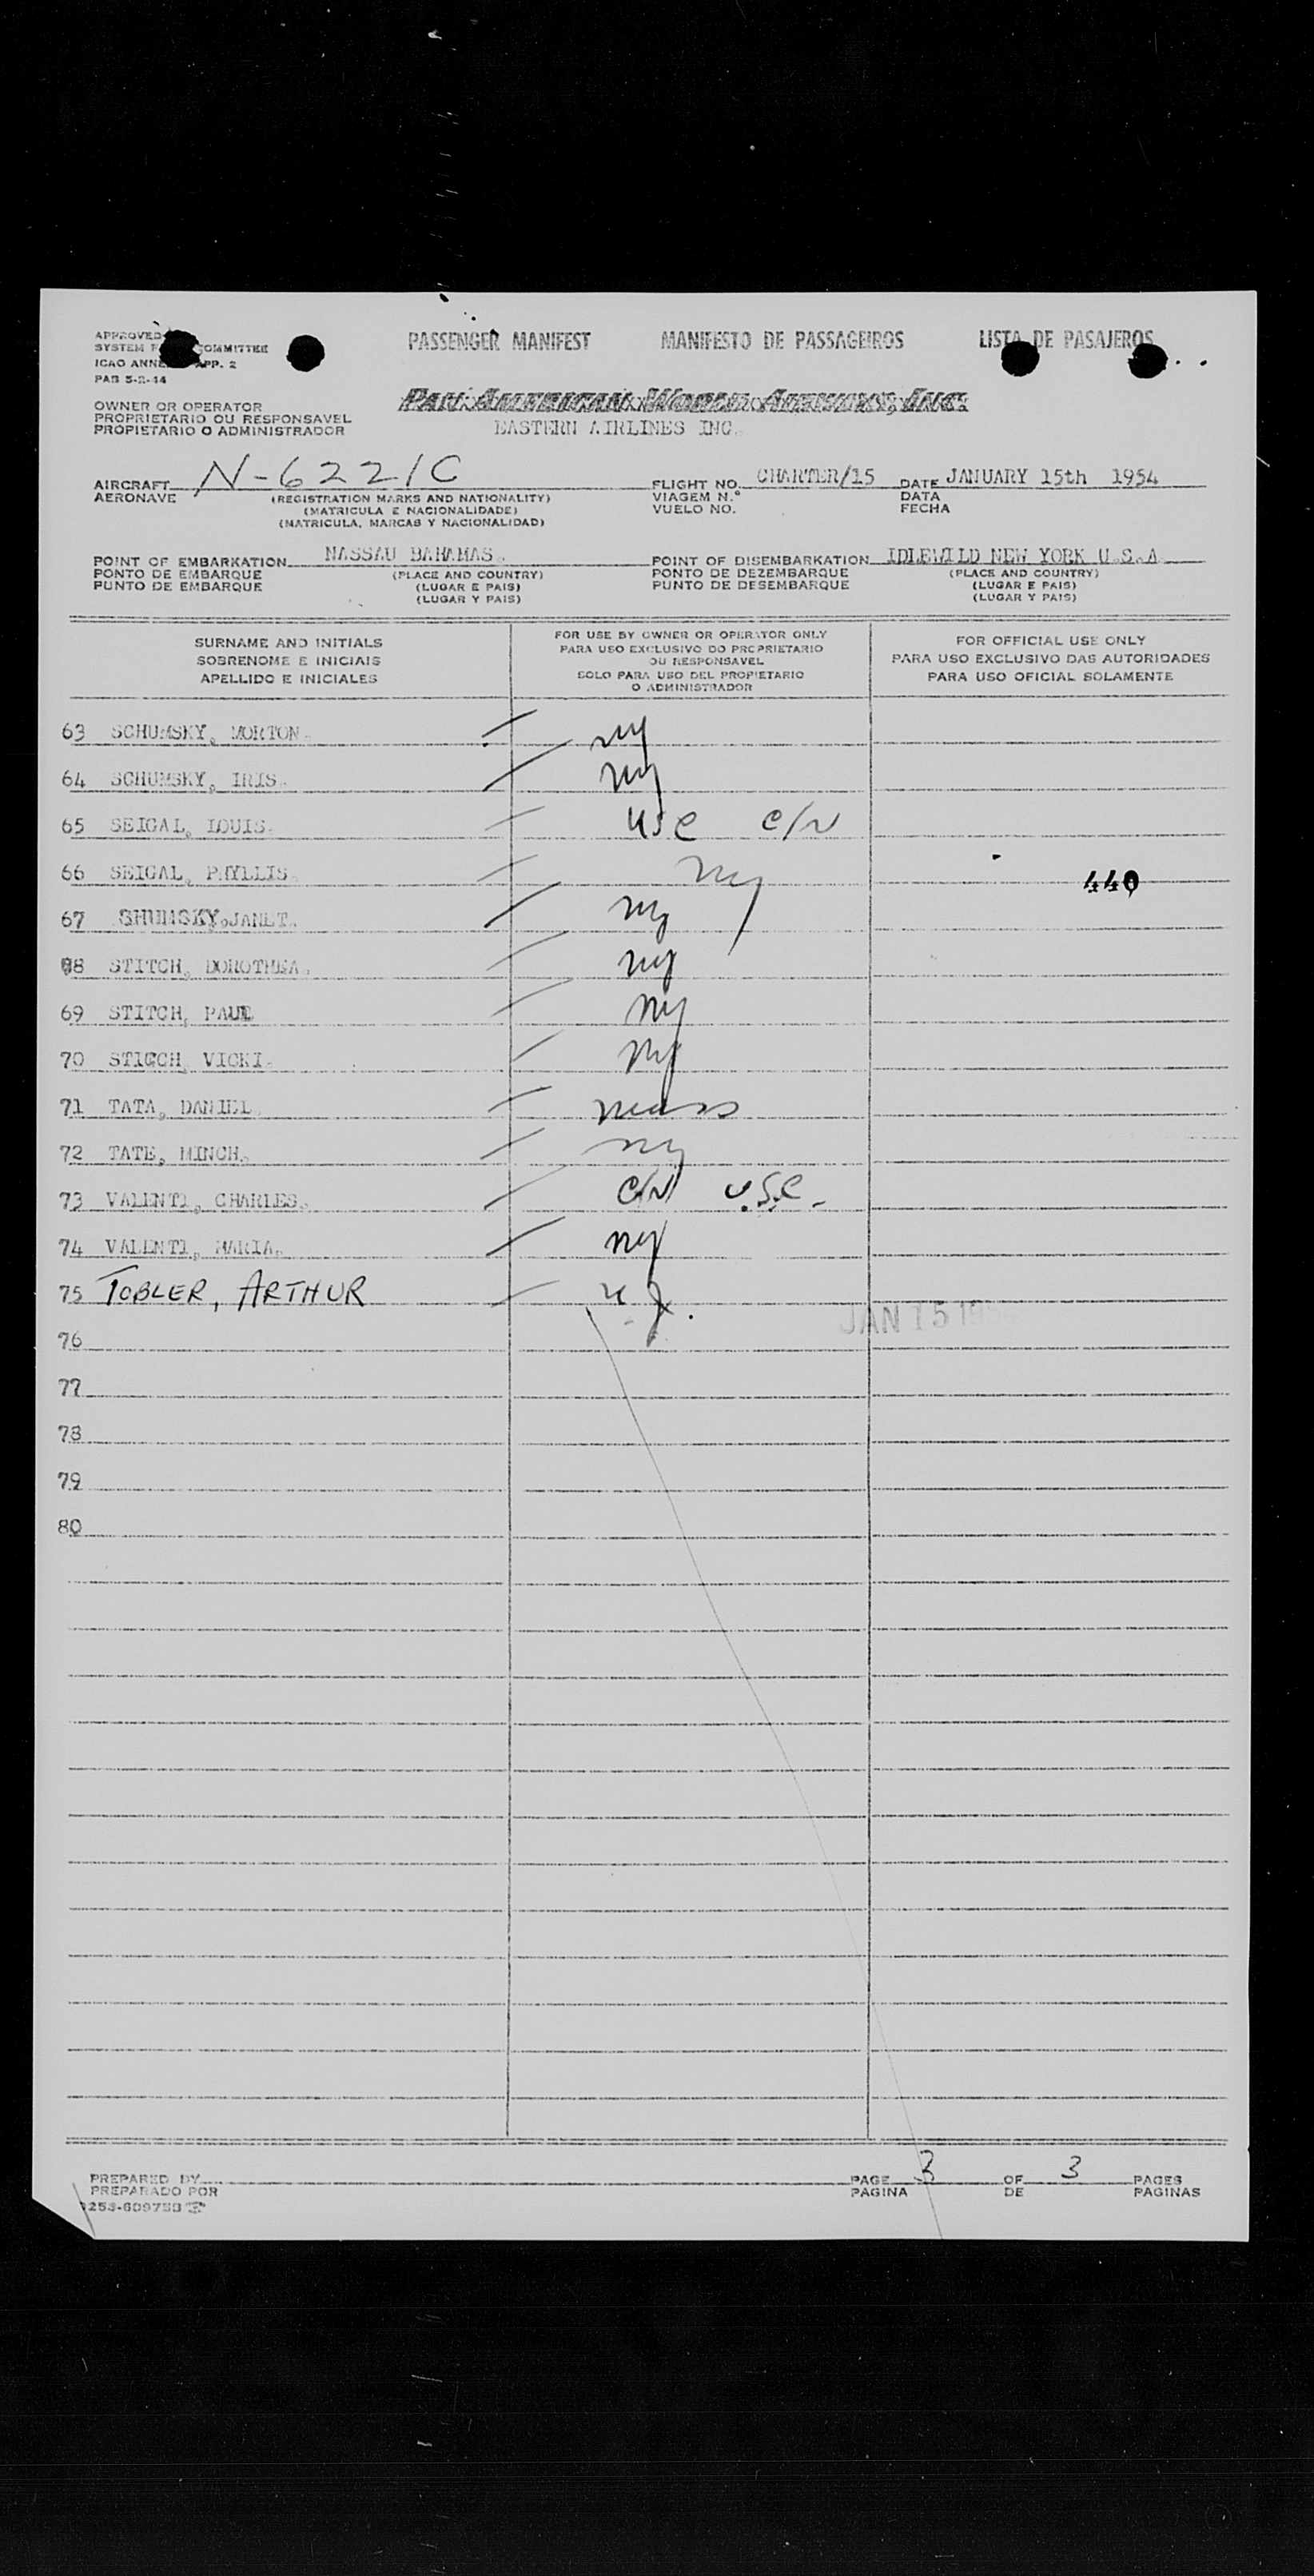 APPROVED
SYSTEM COMMITTEE
ICAO APP. 2
PAB 5-2-44
PASSENGER MANIFEST MANIFESTO DE PASSAGEIROS LISTA DE PASAJEROS
OWNER OR OPERATOR
PROPRIETARIO OU RESPONSAVEL
PROPIETARIO O ADMINISTRADOR
PAN AMERICAN WORLD AIRWAYS, INC.
EASTERN AIRLINES INC.
AIRCRAFT N-6221C FLIGHT NO. CHARTER/15 DATE JANUARY 15th 1954
AERONAVE (REGISTRATION MARKS AND NATIONALITY) VIAGEM N.º DATA
(MATRICULA E NACIONALIDADE) VUELO NO. FECHA
(MATRICULA, MARCAS Y NACIONALIDAD)
POINT OF EMBARKATION NASSAU BAHAMAS. POINT OF DISEMBARKATION IDLEWILD NEW YORK U.S.A.
PONTO DE EMBARQUE (PLACE AND COUNTRY) PONTO DE DEZEMBARQUE (PLACE AND COUNTRY)
PUNTO DE EMBARQUE (LUGAR E PAIS) PUNTO DE DESEMBARQUE (LUGAR E PAIS)
(LUGAR Y PAIS) (LUGAR Y PAIS)
SURNAME AND INITIALS
SOBRENOME E INICIAIS
APELLIDO E INICIALES
FOR USE BY OWNER OR OPERATOR ONLY
PARA USO EXCLUSIVO DO PROPRIETARIO
OU RESPONSAVEL
SOLO PARA USO DEL PROPIETARIO
O ADMINISTRADOR
FOR OFFICIAL USE ONLY
PARA USO EXCLUSIVO DAS AUTORIDADES
PARA USO OFICIAL SOLAMENTE
63 SCHUMSKY, MORTON. ny
64 SCHUMSKY, IRIS. ny
65 SEIGAL, LOUIS. USC C/N
66 SEIGAL, PHYLLIS. ny 440
67 SHUMSKY, JANET. ny
68 STITCH, DOROTHEA. ny
69 STITCH, PAUL ny
70 STICCH, VICKI. ny
71 TATA, DANIEL. mass
72 TATE, MINCH. ny
73 VALENTI, CHARLES. C/N U.S.C.
74 VALENTI, MARIA. ny
75 TOBLER, ARTHUR
JAN 15 19
76
77
78
79
80
PREPARED BY PAGE 3 OF 3 PAGES
PREPARADO POR PAGINA DE PAGINAS